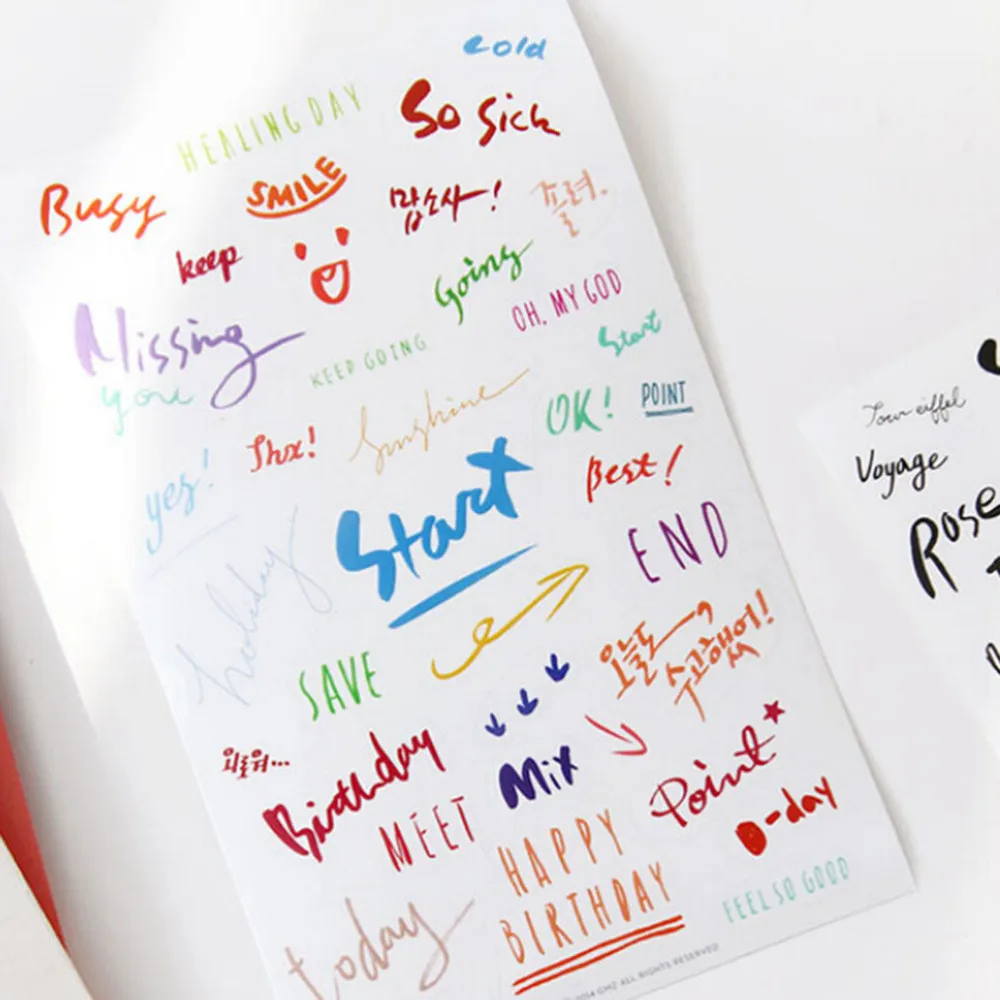 cold
HEALING DAY
So Sick
Busy
SMILE
맙소사!
졸려.
keep
Going
OH, MY GOD
Missing
you
KEEP GOING
Start
Thx!
Sunshine
OK!
POINT
yes!
Start
Best!
holiday
END
SAVE
오늘도
수고했어!
외로워...
Birthday
Mix
Point
MEET
D-day
HAPPY
BIRTHDAY
FEEL SO GOOD
today
2014 GMZ ALL RIGHTS RESERVED
Tour eiffel
Voyage
Rose